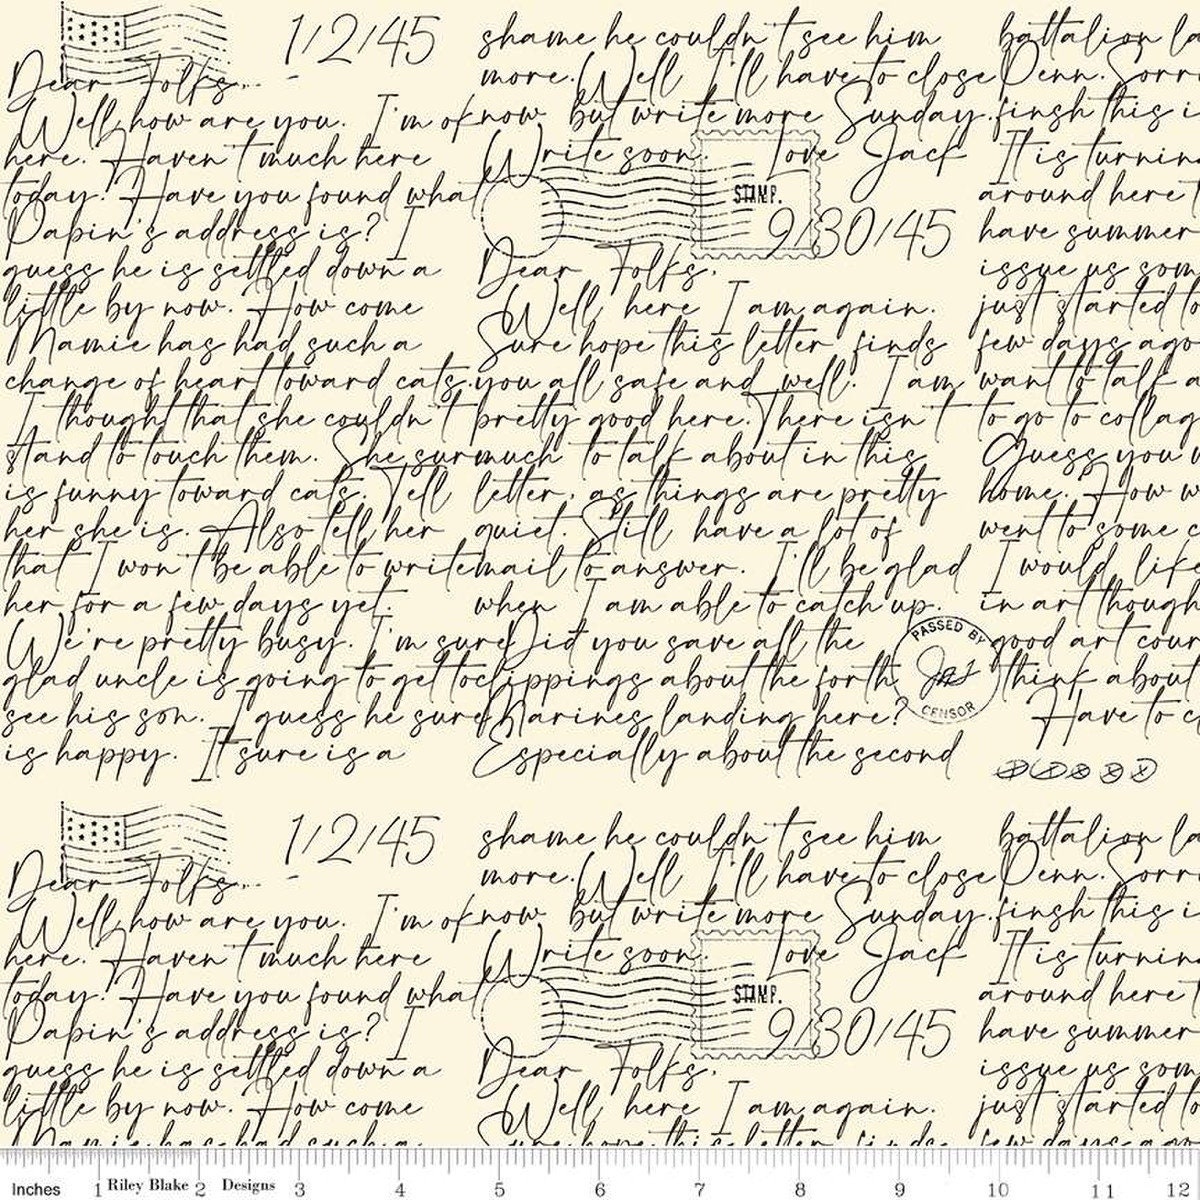 1/2/45
Dear Folks,
Well how are you. I'm ok
here. Haven't much here
today. Have you found what
Dapin's address is? I
guess he is settled down a
little by now. How come
Mamie has had such a
change of heart toward cats.
I thought that she couldn't
stand to touch them. She sur
is funny toward cats. Tell
her she is. Also tell her
that I won't be able to write
her for a few days yet.
We're pretty busy. I'm sure
glad uncle is going to get to
see his son. I guess he sure
is happy. It sure is a
shame he couldn't see him
more. Well I'll have to close
now but write more Sunday.
Write soon. Love Jack
STAMP.
9/30/45
Dear Folks,
Well here I am again.
Sure hope this letter finds
you all safe and well. I am
pretty good here. There isn't
much to talk about in this
letter, as things are pretty
quiet. Still have a lot of
mail to answer. I'll be glad
when I am able to catch up.
Did you save all the
clippings about the forth
Marines landing here?
Especially about the second
PASSED BY
CENSOR
battalion la
Penn. Sorr
finsh this i
It is turnin
around here t
have summer
issue us som
just started to
few days ago
want to talk a
to go to collag
Guess you w
home. How w
went to some c
I would like
in art though
good art cour
think about
Have to c
1/2/45
Dear Folks,
Well how are you. I'm ok
here. Haven't much here
today. Have you found what
Dapin's address is? I
guess he is settled down a
little by now. How come
Mamie has had such a
shame he couldn't see him
more. Well I'll have to close
now but write more Sunday.
Write soon. Love Jack
STAMP.
9/30/45
Dear Folks,
Well here I am again.
Sure hope this letter finds
battalion la
Penn. Sorr
finsh this i
It is turnin
around here t
have summer
issue us som
just started to
few days ago
Inches 1 Riley Blake 2 Designs 3 4 5 6 7 8 9 10 11 12